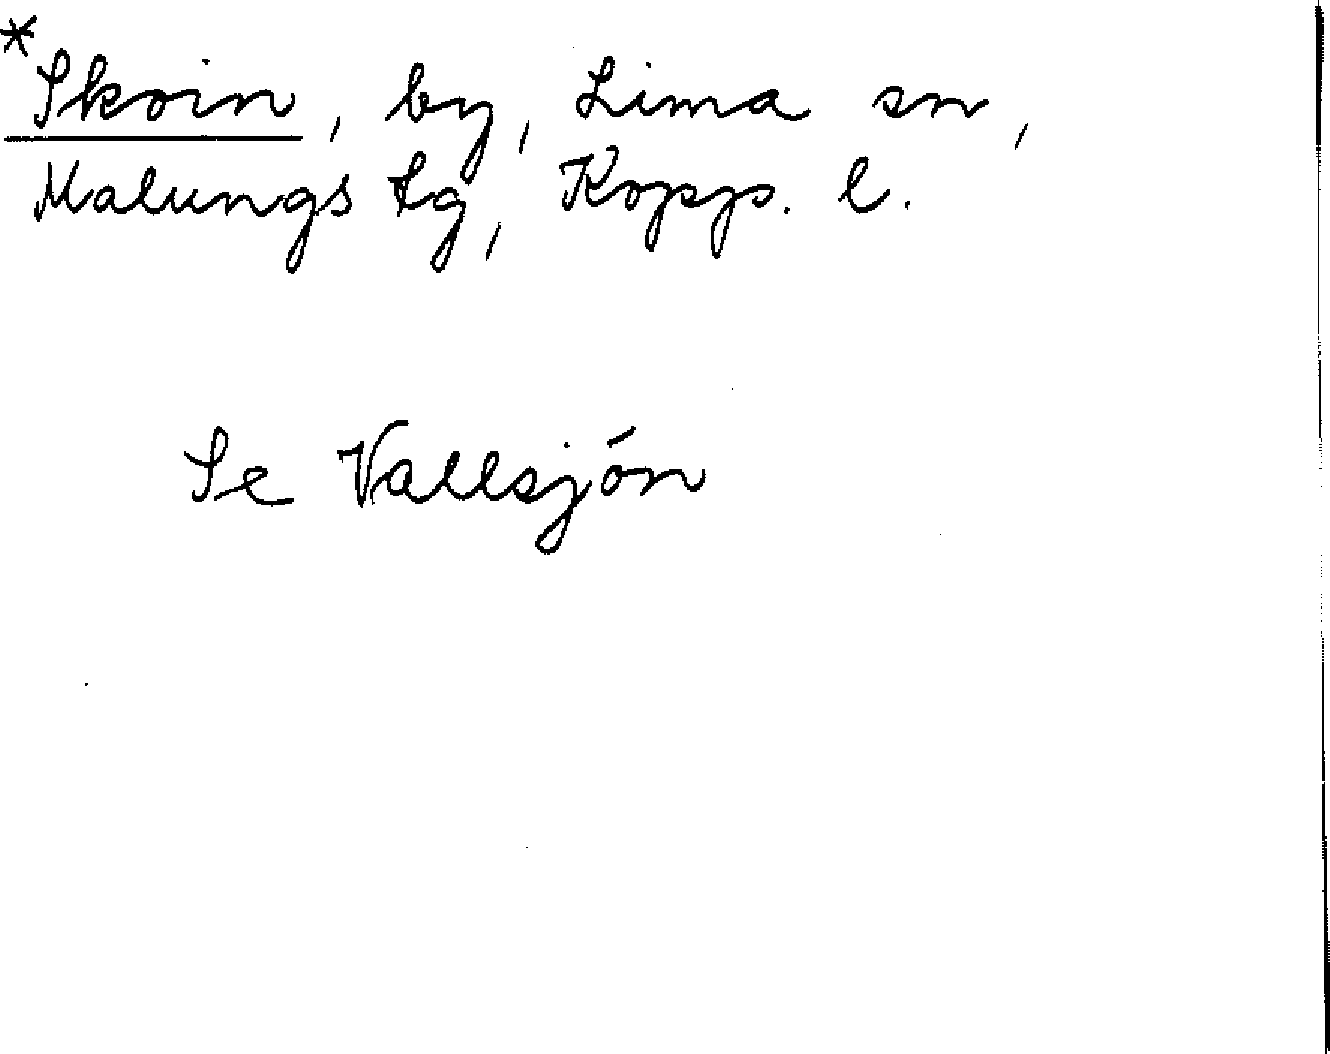 *Skoin, by, Lima sn,
Malungs tg, Kopp. l.
Se Vallsjón